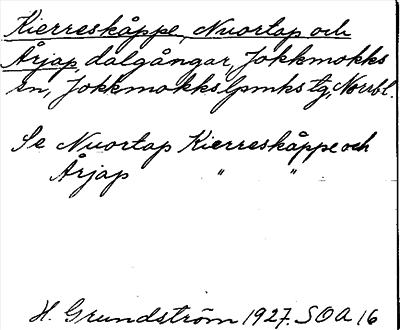 Kierreskåppe, Nuortap och
Årjap, dalgångar, Jokkmokks
sn, Jokkmokks lpmks tg, Norrb l.
Se Nuortap Kierreskåppe och
Årjap " "
H. Grundström 1927. SOA 16